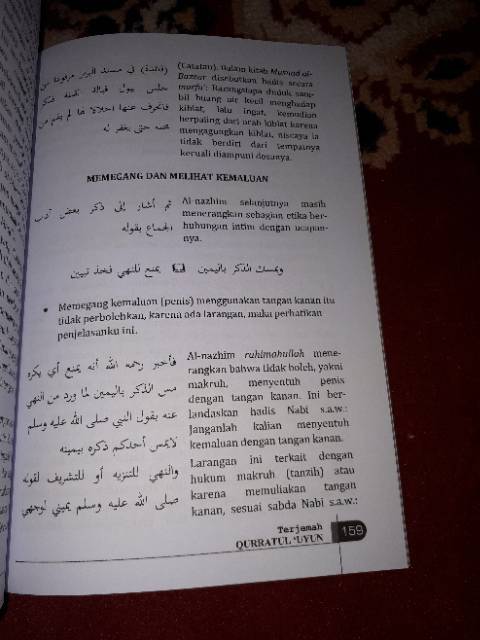 (فائدة) في مسند البزار مرفوعا من
جلس يبول قبالة القبلة فذكر
فانحرف عنها اجلالا لها لم يقم من
مجلسه حتى يغفر له
(Catatan). Dalam kitab Musnad al-
Bazzar disebutkan hadis secara
marfu': Barangsiapa duduk sam-
bil buang air kecil menghadap
kiblat, lalu ingat, kemudian
berpaling dari arah kiblat karena
mengagungkan kiblat, niscaya ia
tidak berdiri dari tempatnya
kecuali diampuni dosanya.
MEMEGANG DAN MELIHAT KEMALUAN
ثم أشار إلى ذكر بعض آداب
الجماع بقوله
Al-nazhim selanjutnya masih
menerangkan sebagian etika ber-
hubungan intim dengan ucapan-
nya.
ويمسك الذكر باليمين يمنع للنهي فخذ تبيين
• Memegang kemaluan (penis) menggunakan tangan kanan itu
tidak perbolehkan, karena ada larangan, maka perhatikan
penjelasanku ini.
فأخبر رحمه الله أنه يمنع أي يكره
مس الذكر باليمين لما ورد من النهي
عنه بقول النبي صلى الله عليه وسلم
لايمس أحدكم ذكره بيمينه
والنهي للتنزيه أو للتشريف لقوله
صلى الله عليه وسلم يميني لوجهي
Al-nazhim rahimahullah mene-
rangkan bahwa tidak boleh, yakni
makruh, menyentuh penis
dengan tangan kanan. Ini ber-
landaskan hadis Nabi s.a.w.:
Janganlah kalian menyentuh
kemaluan dengan tangan kanan.
Larangan ini terkait dengan
hukum makruh (tanzih) atau
karena memuliakan tangan
kanan, sesuai sabda Nabi s.a.w.:
Terjemah
QURRATUL 'UYUN
159